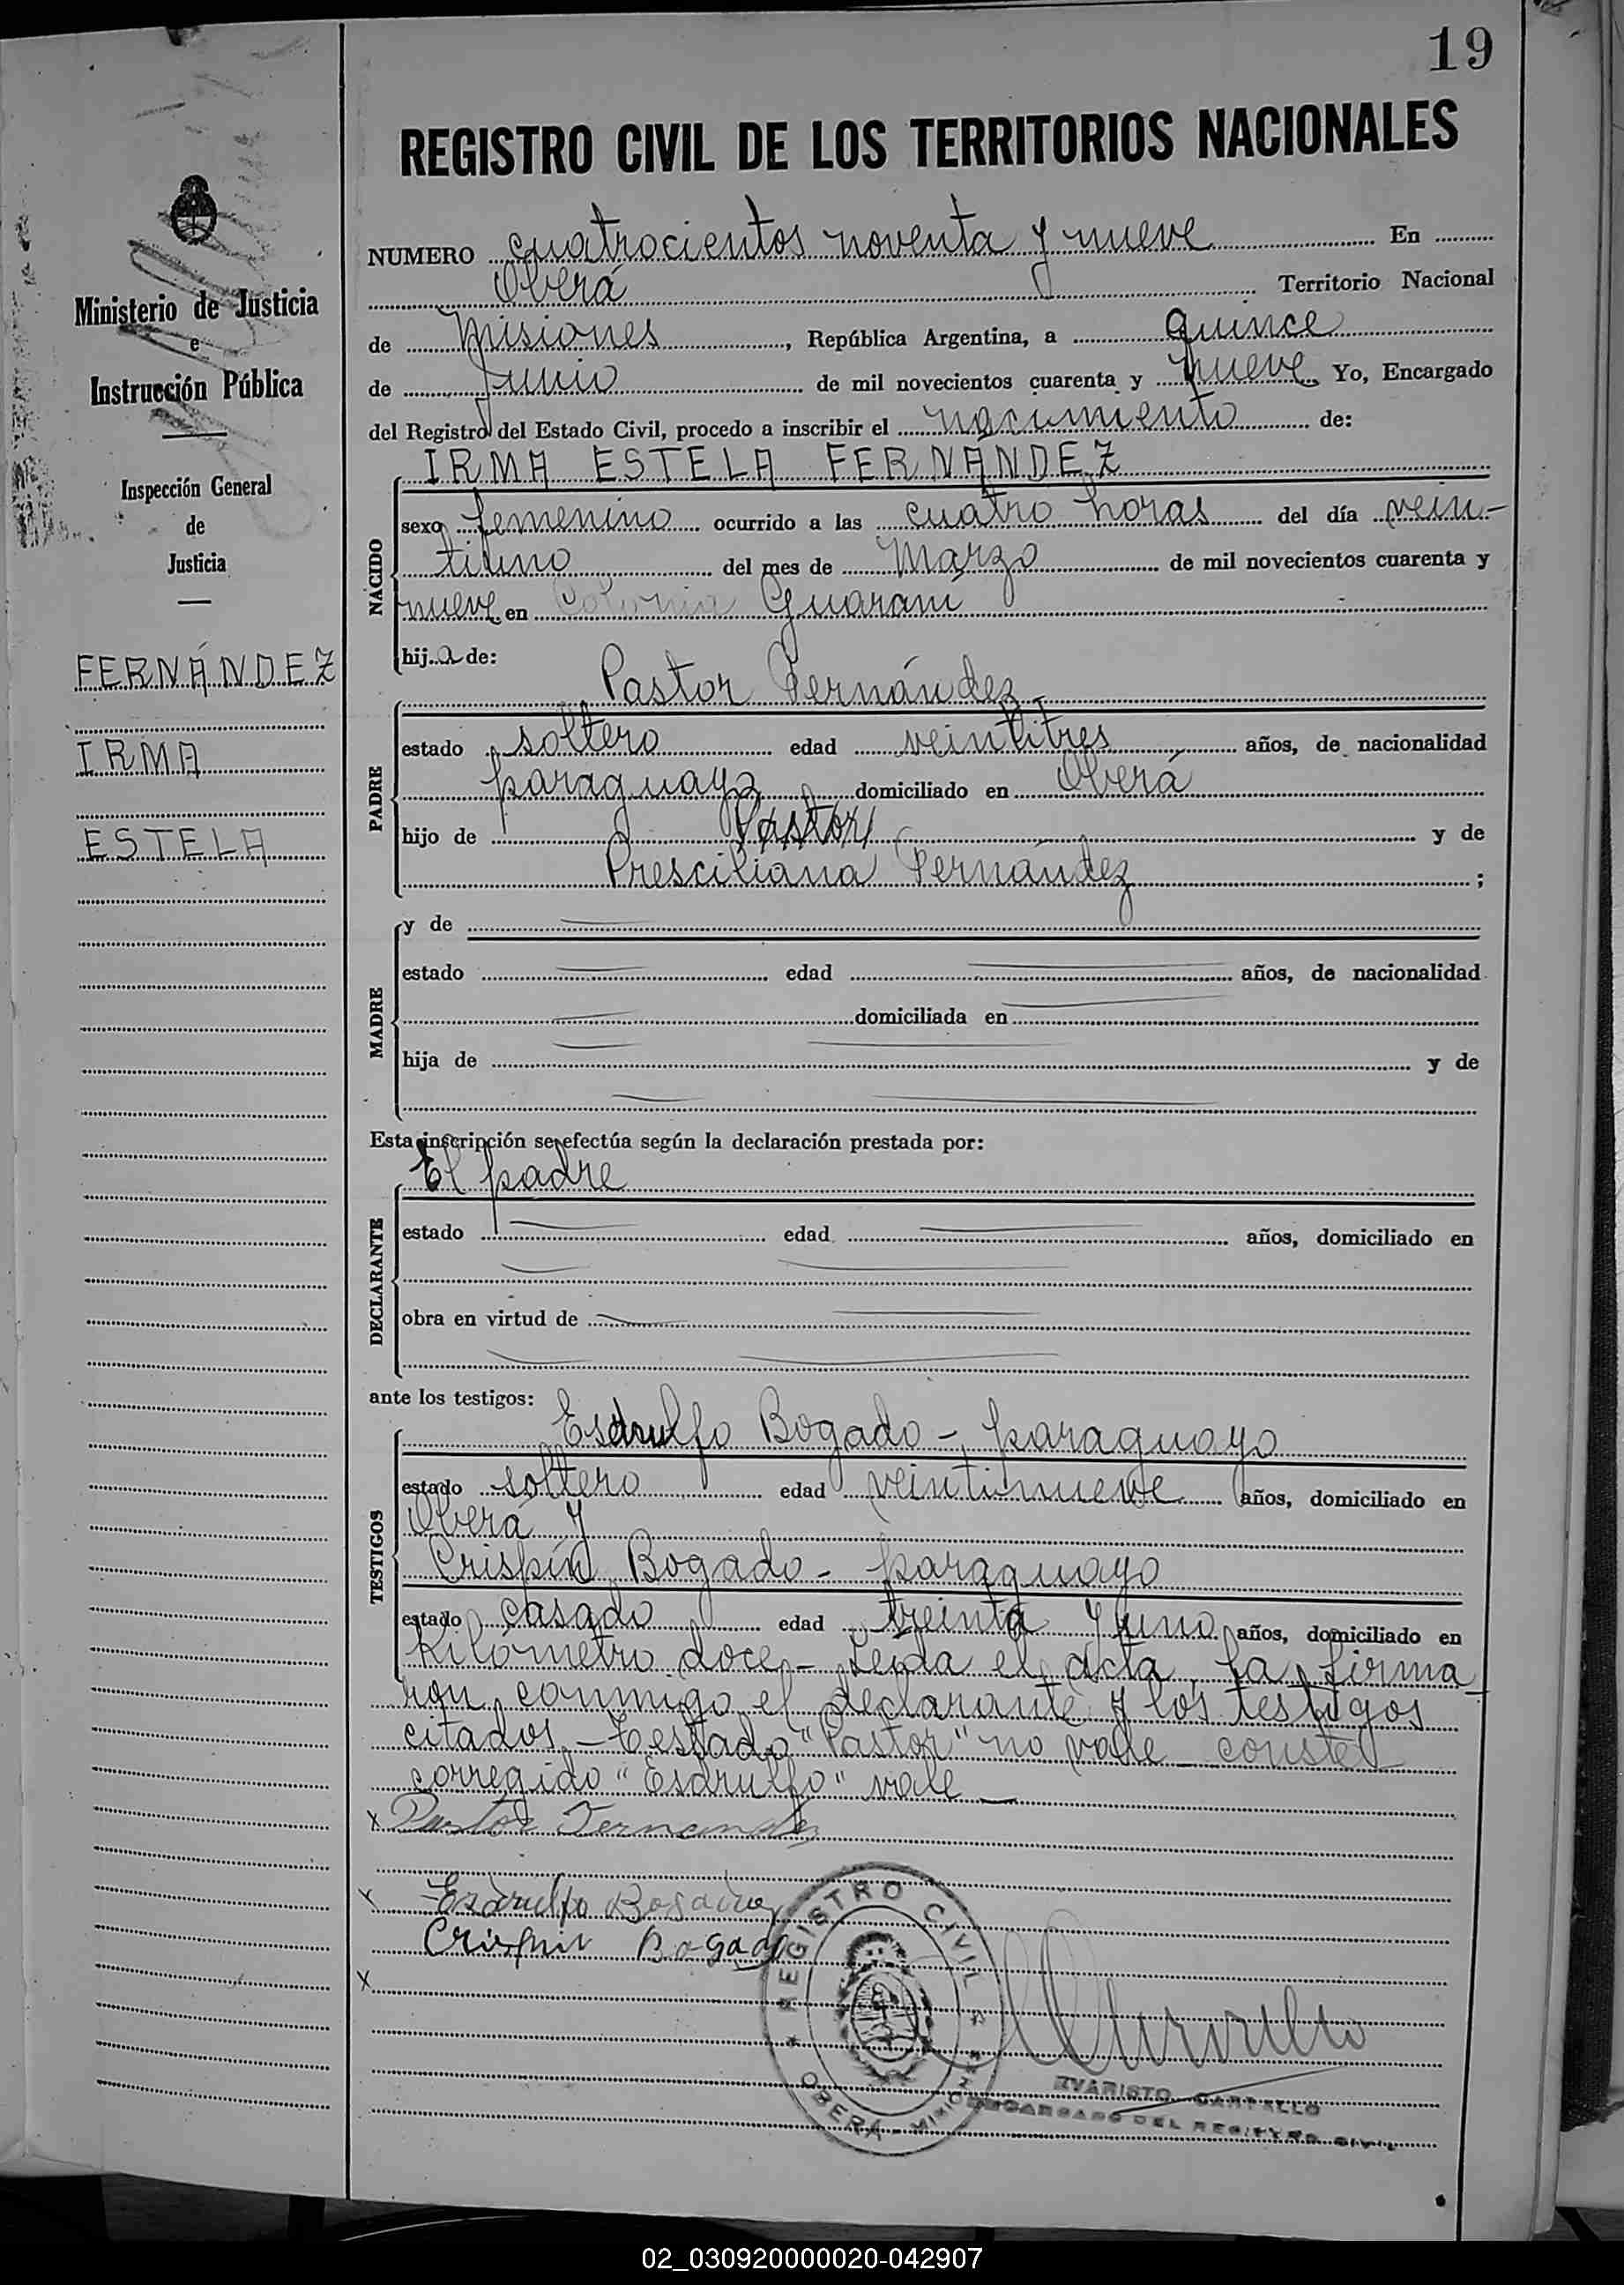 19
REGISTRO CIVIL DE LOS TERRITORIOS NACIONALES
Ministerio de Justicia
e
Instrucción Pública
Inspección General
de
Justicia
FERNÁNDEZ
IRMA
ESTELA
NUMERO cuatrocientos noventa y nueve En
Oberá Territorio Nacional
de Misiones, República Argentina, a quince
de Junio de mil novecientos cuarenta y nueve Yo, Encargado
del Registro del Estado Civil, procedo a inscribir el nacimiento de:
NACIDO
IRMA ESTELA FERNÁNDEZ
sexo femenino ocurrido a las cuatro horas del día vein-
tiuno del mes de Marzo de mil novecientos cuarenta y
nueve en Colonia Guaraní
hija de:
PADRE
Pastor Fernández
estado soltero edad veintitres años, de nacionalidad
paraguaya domiciliado en Oberá
hijo de Pastor y de
Presciliana Fernández ;
MADRE
y de
estado edad años, de nacionalidad
domiciliada en
hija de y de
Esta inscripción se efectúa según la declaración prestada por:
DECLARANTE
El padre
estado edad años, domiciliado en
obra en virtud de
ante los testigos:
TESTIGOS
Esdrulfo Bogado - paraguayo
estado soltero edad veintinueve años, domiciliado en
Oberá y
Crispín Bogado - paraguayo
estado casado edad treinta y uno años, domiciliado en
Kilómetro doce - Leida el acta la firma
ron conmigo el declarante y los testigos
citados - Testado "Pastor" no vale - conste
corregido "Esdrulfo" vale -
x Pastor Fernandez
x Esdrulfo Bogado
Crispin Bogado
x
REGISTRO CIVIL
OBERÁ - MISIONES
EVARISTO
ENCARGADO DEL REGISTRO CIVIL
02_030920000020-042907